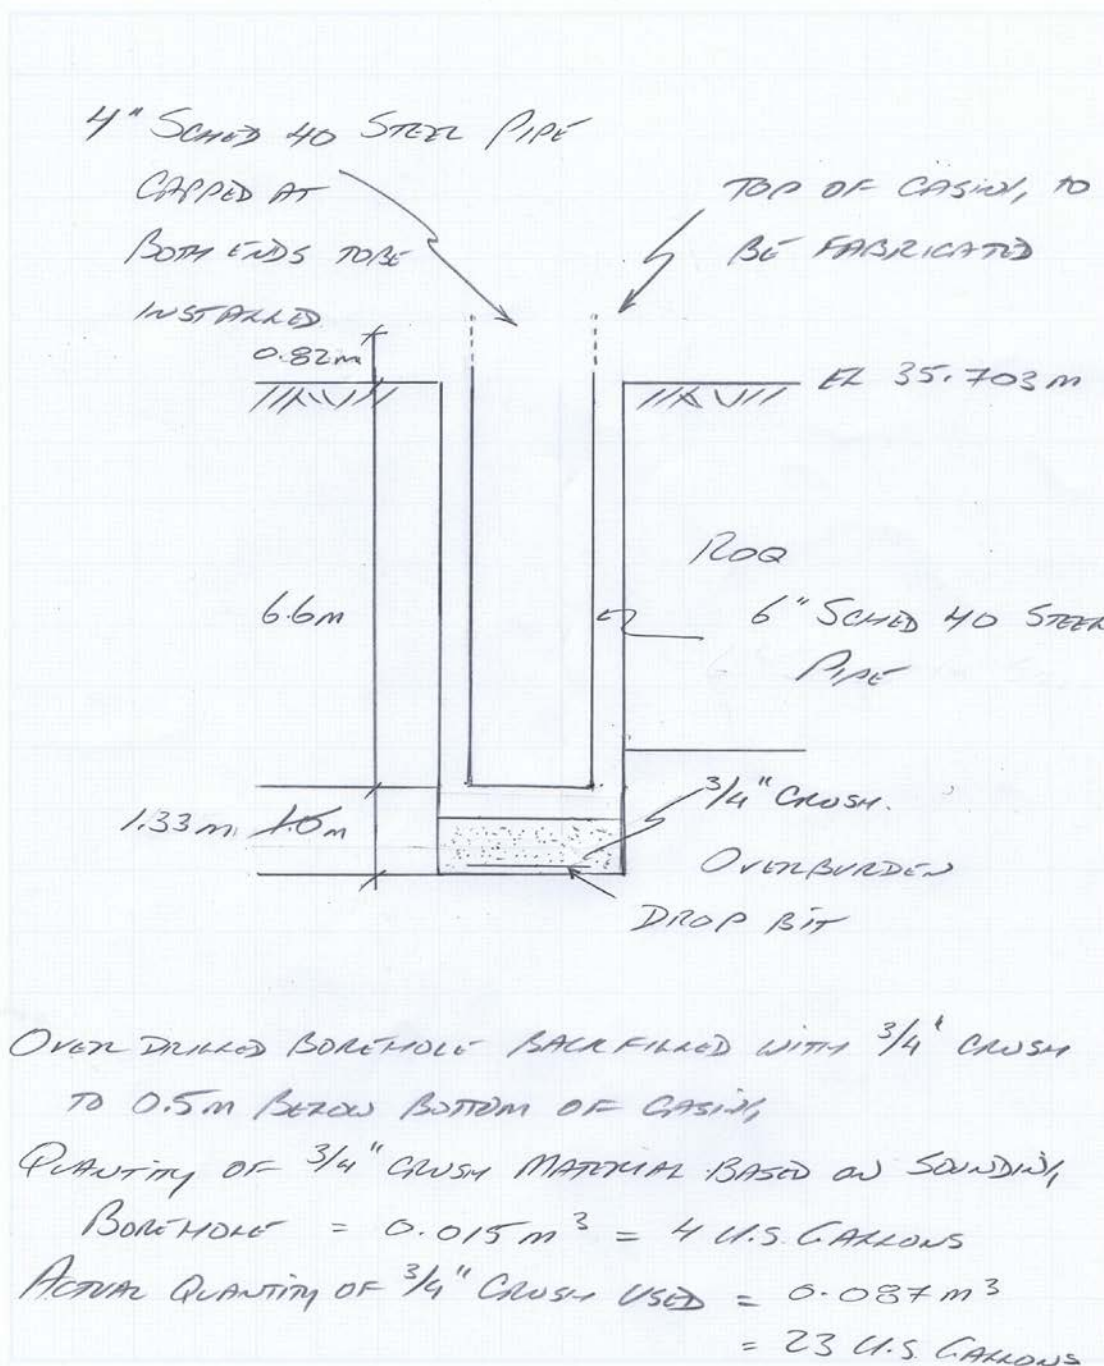 4" SCHED 40 STEEL PIPE
CAPPED AT
BOTH ENDS TO BE
INSTALLED.
TOP OF CASING, TO
BE FABRICATED
0.82m
EL 35.703m
ROQ
6.6m
6" SCHED 40 STEEL
PIPE
3/4" CRUSH.
1.33m. 1.0m
OVERBURDEN
DROP BIT
OVER DRILLED BOREHOLE BACKFILLED WITH 3/4" CRUSH
TO 0.5m BELOW BOTTOM OF CASING
QUANTITY OF 3/4" CRUSH MATERIAL BASED ON SOUNDING
BOREHOLE = 0.015m³ = 4 U.S. GALLONS
ACTUAL QUANTITY OF 3/4" CRUSH USED = 0.087m³
= 23 U.S. GALLONS